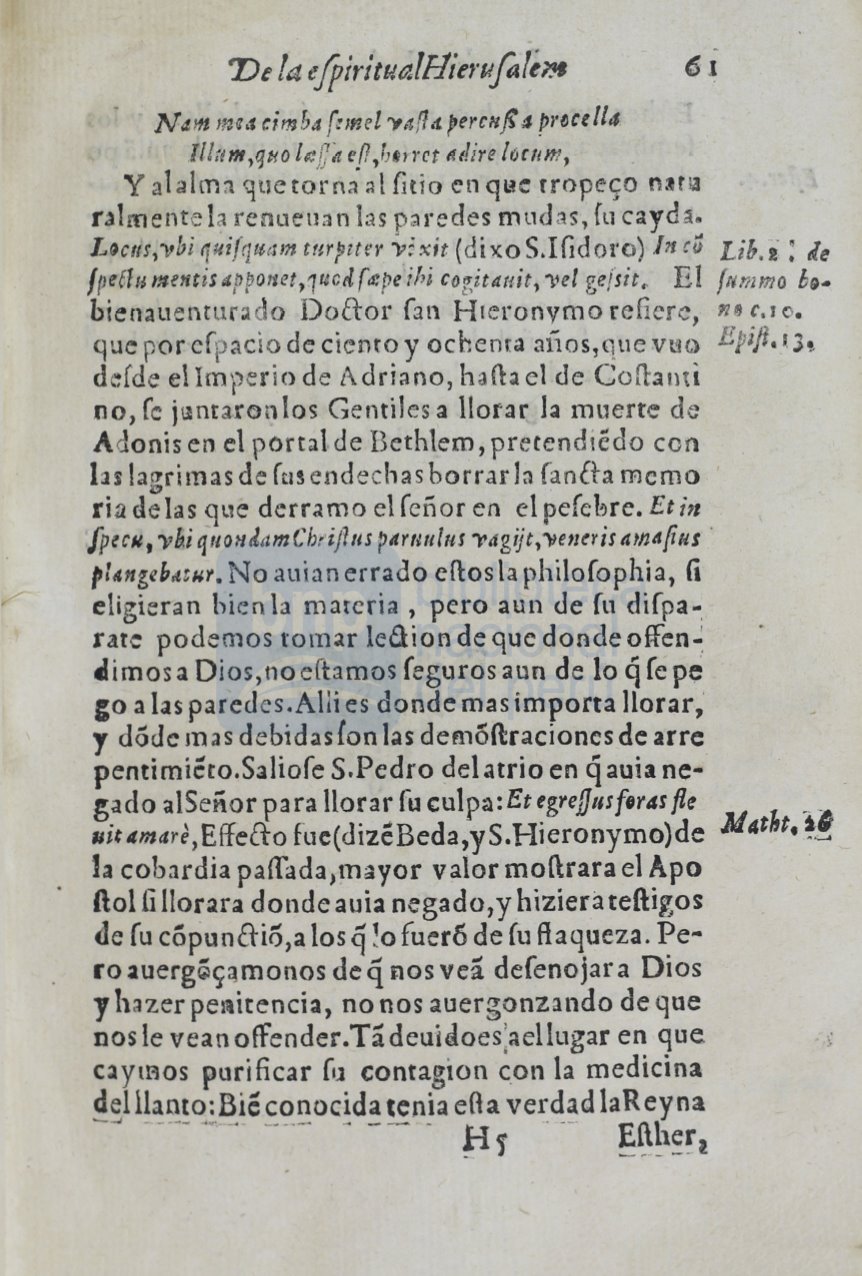 De la eſpiritual Hieruſalem 61
Nam mea cimba ſemel vaſta percuſſa procella
Illum, quo læſſa eſt, horret adire locum,
Y al alma que torna al ſitio en que tropeço natu
ralmente la renueuan las paredes mudas, ſu cayda.
Locus, vbi quiſquam turpiter vixit (dixo S. Iſidoro) In cõ
ſpectu mentis apponet, quod ſæpe ibi cogitauit, vel geſsit. El
bienauenturado Doctor ſan Hieronymo refiere,
que por eſpacio de ciento y ochenta años, que vuo
deſde el Imperio de Adriano, haſta el de Coſtanti
no, ſe juntaron los Gentiles a llorar la muerte de
Adonis en el portal de Bethlem, pretendiẽdo con
las lagrimas de ſus endechas borrar la ſancta memo
ria de las que derramo el ſeñor en el peſebre. Et in
ſpecu, vbi quondam Chriſtus paruulus vagijt, veneris amaſius
plangebatur. No auian errado eſtos la philoſophia, ſi
eligieran bien la materia , pero aun de ſu diſpa-
rate podemos tomar lection de que donde offen-
dimos a Dios, no eſtamos ſeguros aun de lo q̃ ſe pe
go a las paredes. Alli es donde mas importa llorar,
y dõde mas debidas ſon las demõſtraciones de arre
pentimiẽto. Salioſe S. Pedro del atrio en q̃ auia ne-
gado al Señor para llorar ſu culpa: Et egreſſus foras fle
uit amarè, Effecto fue (dizẽ Beda, y S. Hieronymo) de
la cobardia paſſada, mayor valor moſtrara el Apo
ſtol ſi llorara donde auia negado, y hiziera teſtigos
de ſu cõpunctiõ, a los q̃ lo fuerõ de ſu flaqueza. Pe-
ro auergõçamonos de q̃ nos veã deſenojar a Dios
y hazer penitencia, no nos auergonzando de que
nos le vean offender. Tã deuido es, a el lugar en que
caymos purificar ſu contagion con la medicina
del llanto: Biẽ conocida tenia eſta verdad la Reyna
H5 Eſther,
Lib. 2 : de
ſummo bo-
no c. 10.
Epiſt. 13.
Matht. 26